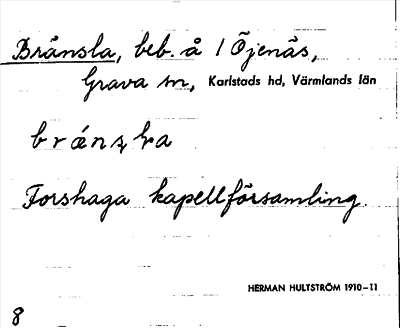 Brånsla, beb. å 1 Öjenäs,
Grava sn, Karlstads hd, Värmlands län
Forshaga kapellförsamling.
HERMAN HULTSTRÖM 1910-11
8